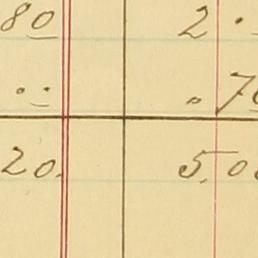 80 2 ·
·· . 70
20. 5.00